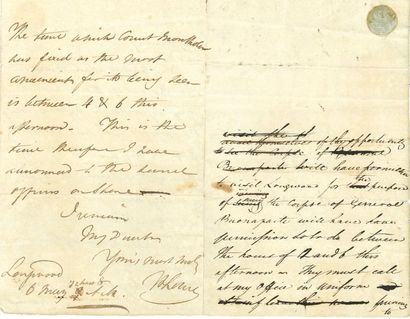 The time which Count Montholon
has fixed as the most
convenient for its being seen
is between 4 & 6 this
afternoon. This is the
time therefore I have
announced to the
officers on shore
I remain
My Dear Sir
Yours most truly
H Lowe
Longwood
6 May
visit the
themselves of the opportunity
to see the Corpse of
Buonaparte will have permission
to visit Longwood for the purpose
of the Corpse of General
Buonaparte will have
permission to do so between
the hours of 2 and 6 this
afternoon They must call
at my Office in uniform